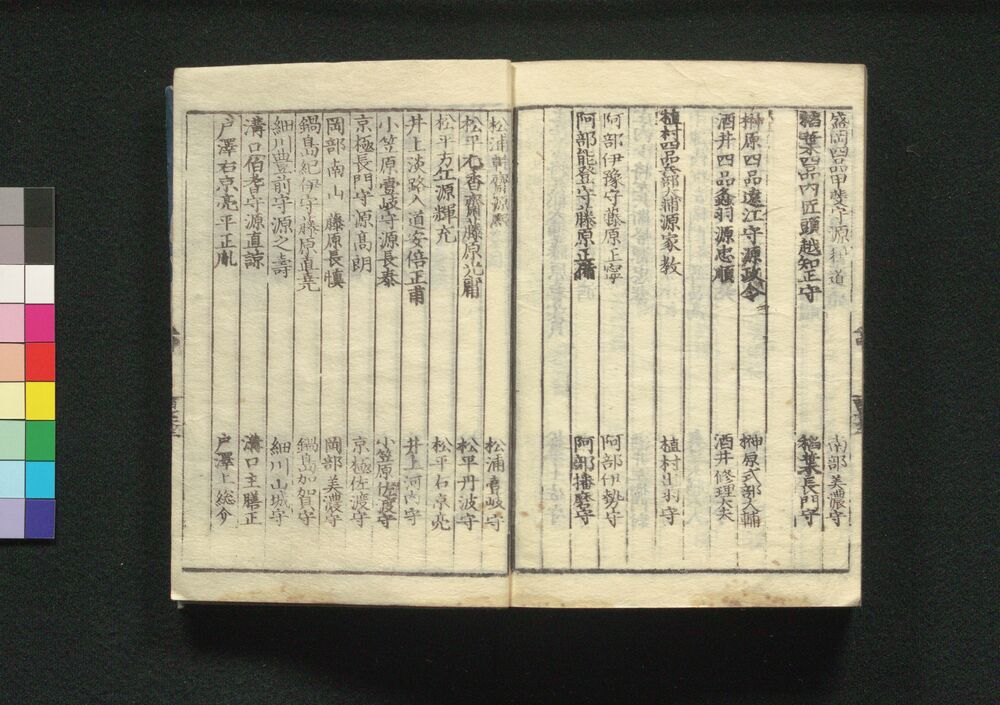 盛岡四品甲斐守源 道 南部美濃守
稲葉四品内匠頭越知正守 稲葉長門守
榊原四品遠江守源政令 榊原式部大輔
酒井四品 源忠順 酒井修理大夫
植村四品兵部 源家教 植村出羽守
阿部伊豫守藤原正寧 阿部伊勢守
阿部能登守藤原正備 阿部播磨守
松浦 齋源熈 松浦壹岐守
松平 香齋藤原光庸 松平丹波守
松平右京源輝充 松平右京亮
井上淡路入道安倍正甫 井上河内守
小笠原壹岐守源長泰 小笠原佐渡守
京極長門守源高朗 京極佐渡守
岡部南山 藤原長慎 岡部美濃守
鍋島紀伊守藤原直堯 鍋島加賀守
細川豊前守源之壽 細川山城守
溝口伯耆守源直諒 溝口主膳正
戸澤右京亮平正胤 戸澤上総介